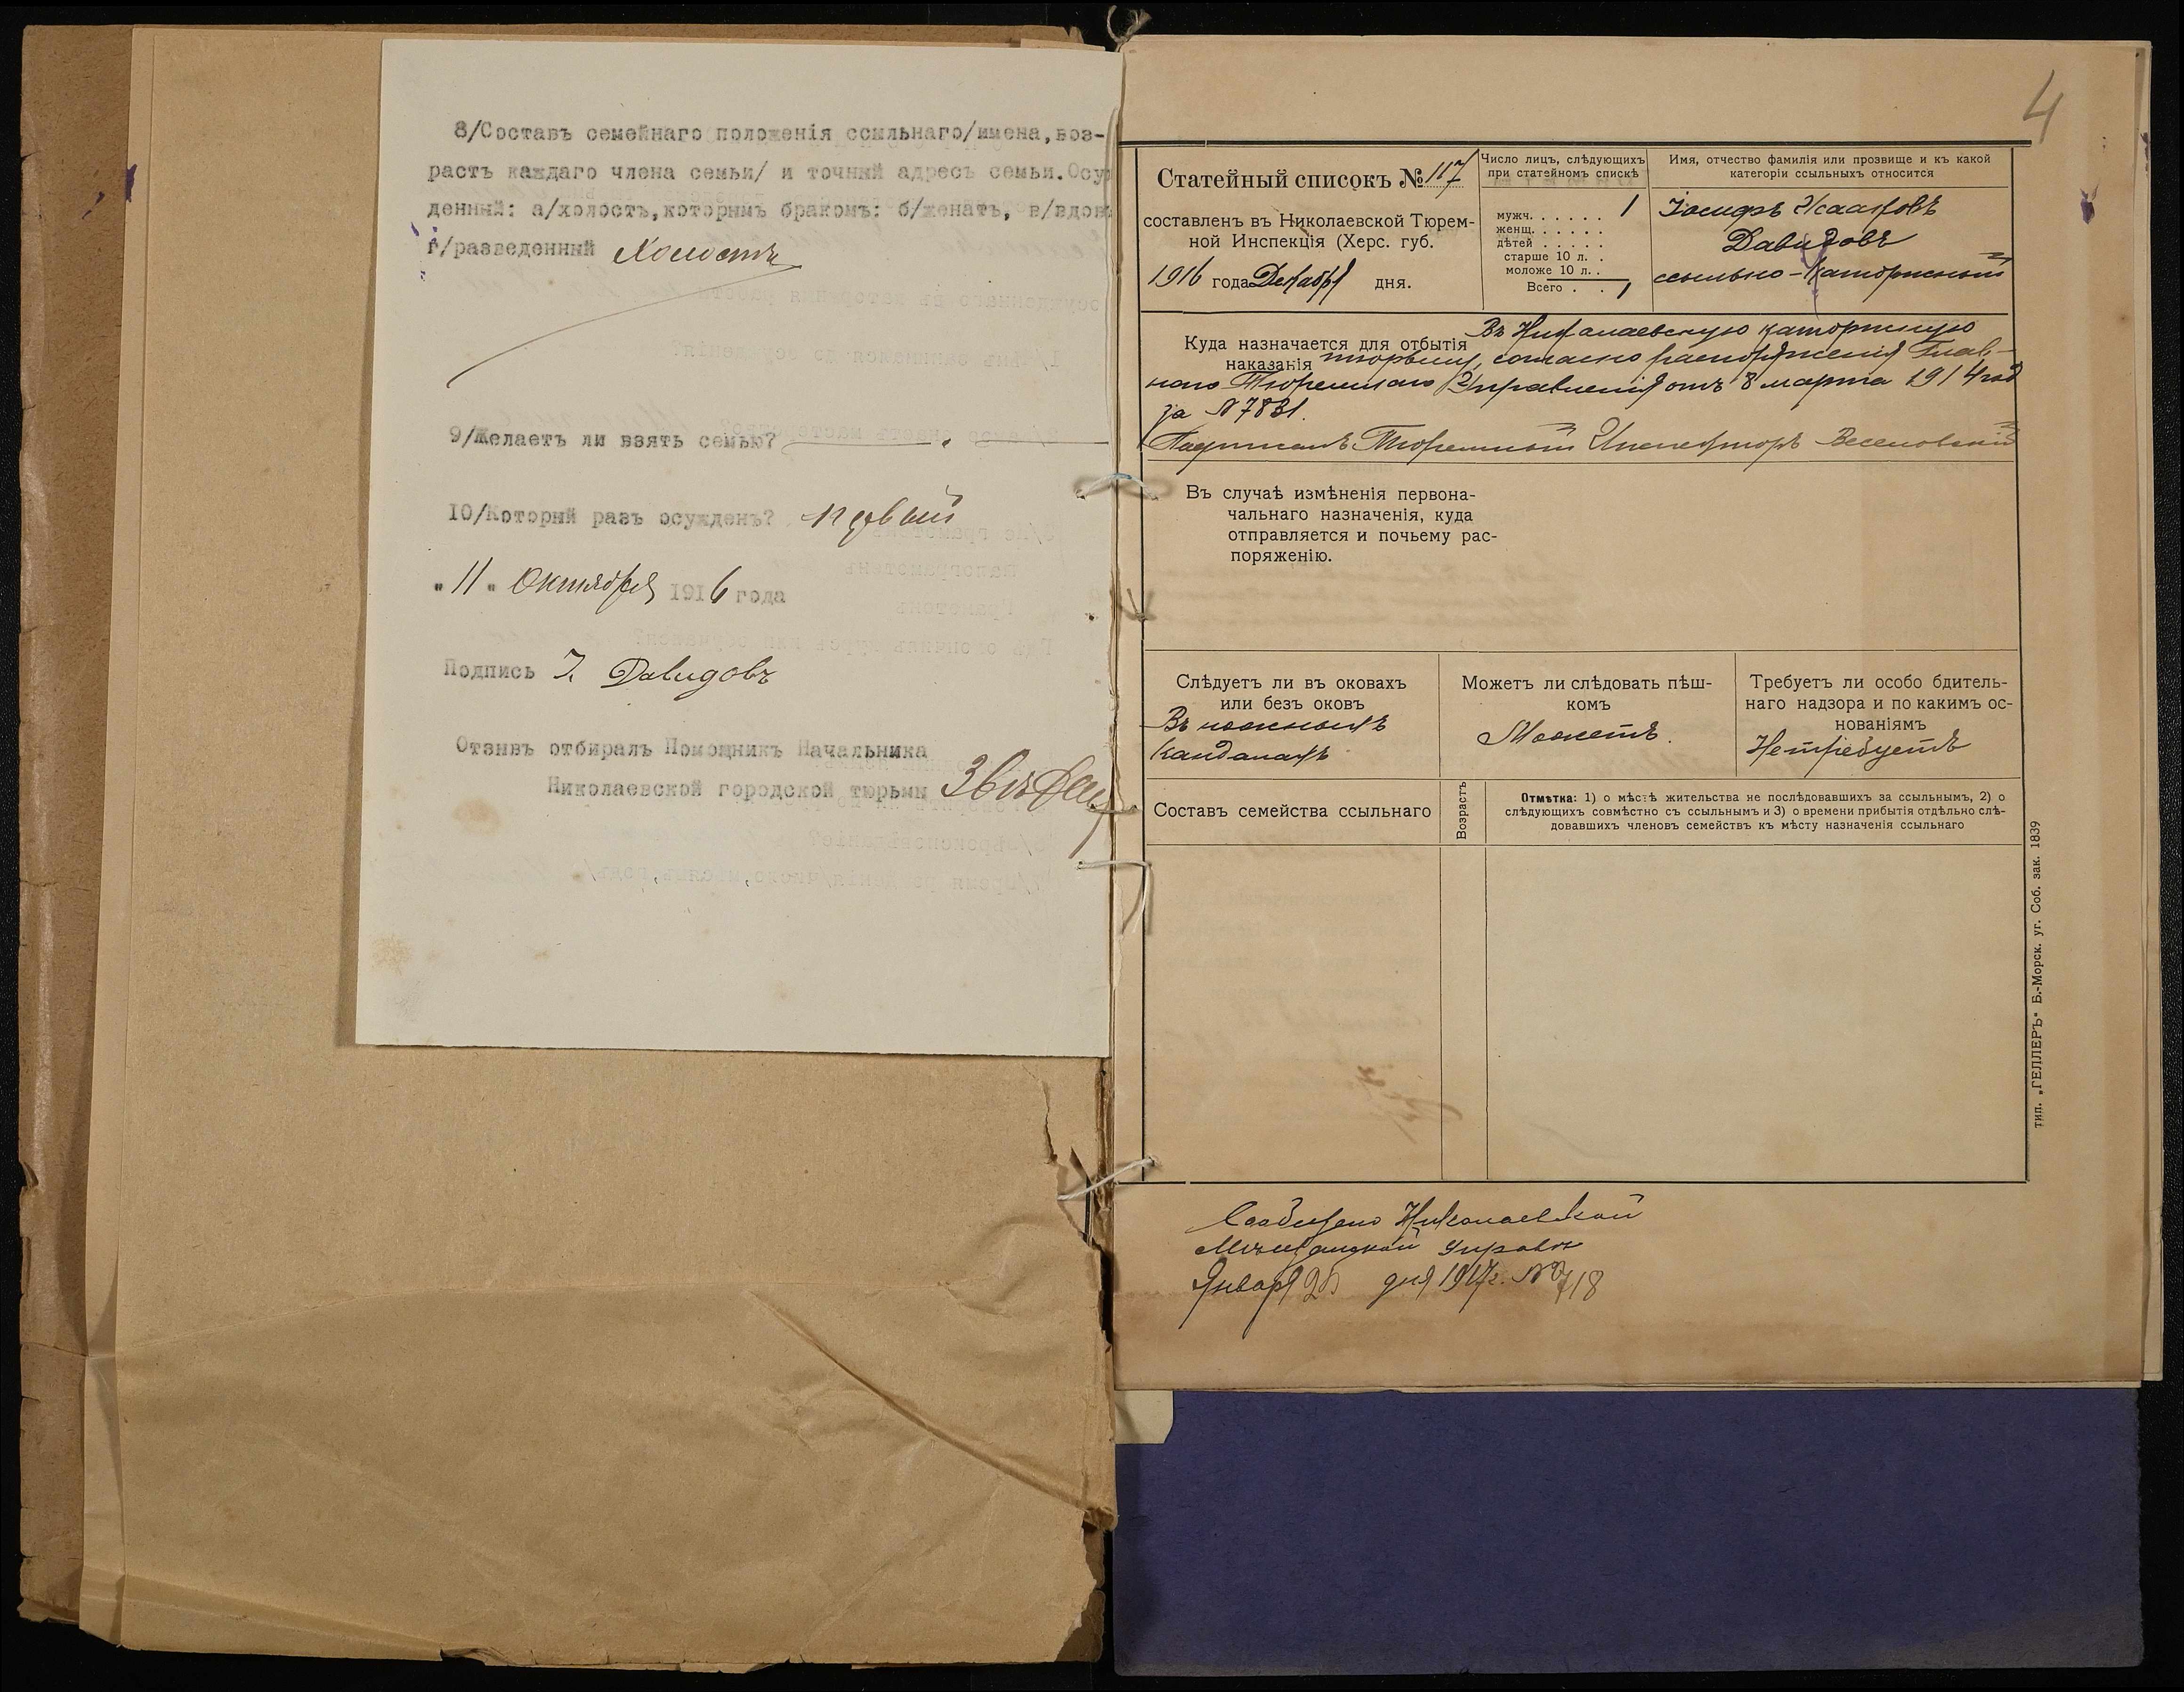 8/Составъ семейнаго положенія ссыльнаго/имена,воз-
растъ каждаго члена семьи/ и точный адресъ семьи.Осу
денный: а/холостъ,которымъ бракомъ: б/женатъ, в/вдов
г/разведенный Холостъ
9/Желаетъ ли взять семью?
10/Который разъ осужденъ? первый
"11" Октября 1916 года
Подпись І. Давидовъ
Отзывъ отбиралъ Помощникъ Начальника
Николаевской городской тюрьмы
4
Статейный списокъ № 117
составленъ въ Николаевской Тюрем-
ной Инспекція (Херс. губ.
1916 года Декабря дня.
Число лицъ, слѣдующихъ
при статейномъ спискѣ
мужч. . . . . . 1
женщ. . . . . .
дѣтей . . . . .
старше 10 л. .
моложе 10 л. .
Всего . . 1
Имя, отчество фамилія или прозвище и къ какой
категоріи ссыльныхъ относится
Іосифъ Исааковъ
Давидовъ
ссыльно-каторжный
Куда назначается для отбытія Въ Николаевскую каторжную
наказанія тюрьму, согласно распоряженія Глав-
наго Тюремнаго Управленія отъ 8 марта 1914 год
за № 7831.
Подписалъ Тюремный Инспекторъ Веселовскій
Въ случаѣ измѣненія первона-
чальнаго назначенія, куда
отправляется и почьему рас-
поряженію.
Слѣдуетъ ли въ оковахъ
или безъ оковъ
Въ ножныхъ
кандалахъ
Можетъ ли слѣдовать пѣш-
комъ
Можетъ.
Требуетъ ли особо бдитель-
наго надзора и по какимъ ос-
нованіямъ
Нетребуетъ
Составъ семейства ссыльнаго
Возрастъ
Отмѣтка: 1) о мѣстѣ жительства не послѣдовавшихъ за ссыльнымъ, 2) о
слѣдующихъ совмѣстно съ ссыльнымъ и 3) о времени прибытія отдѣльно слѣ-
довавшихъ членовъ семействъ къ мѣсту назначенія ссыльнаго
тип. „ГЕЛЛЕРЪ" Б.-Морск. уг. Соб. зак. 1839
Сообщено Николаевской
Мѣщанской управѣ
Января дня 1917 г. № 718